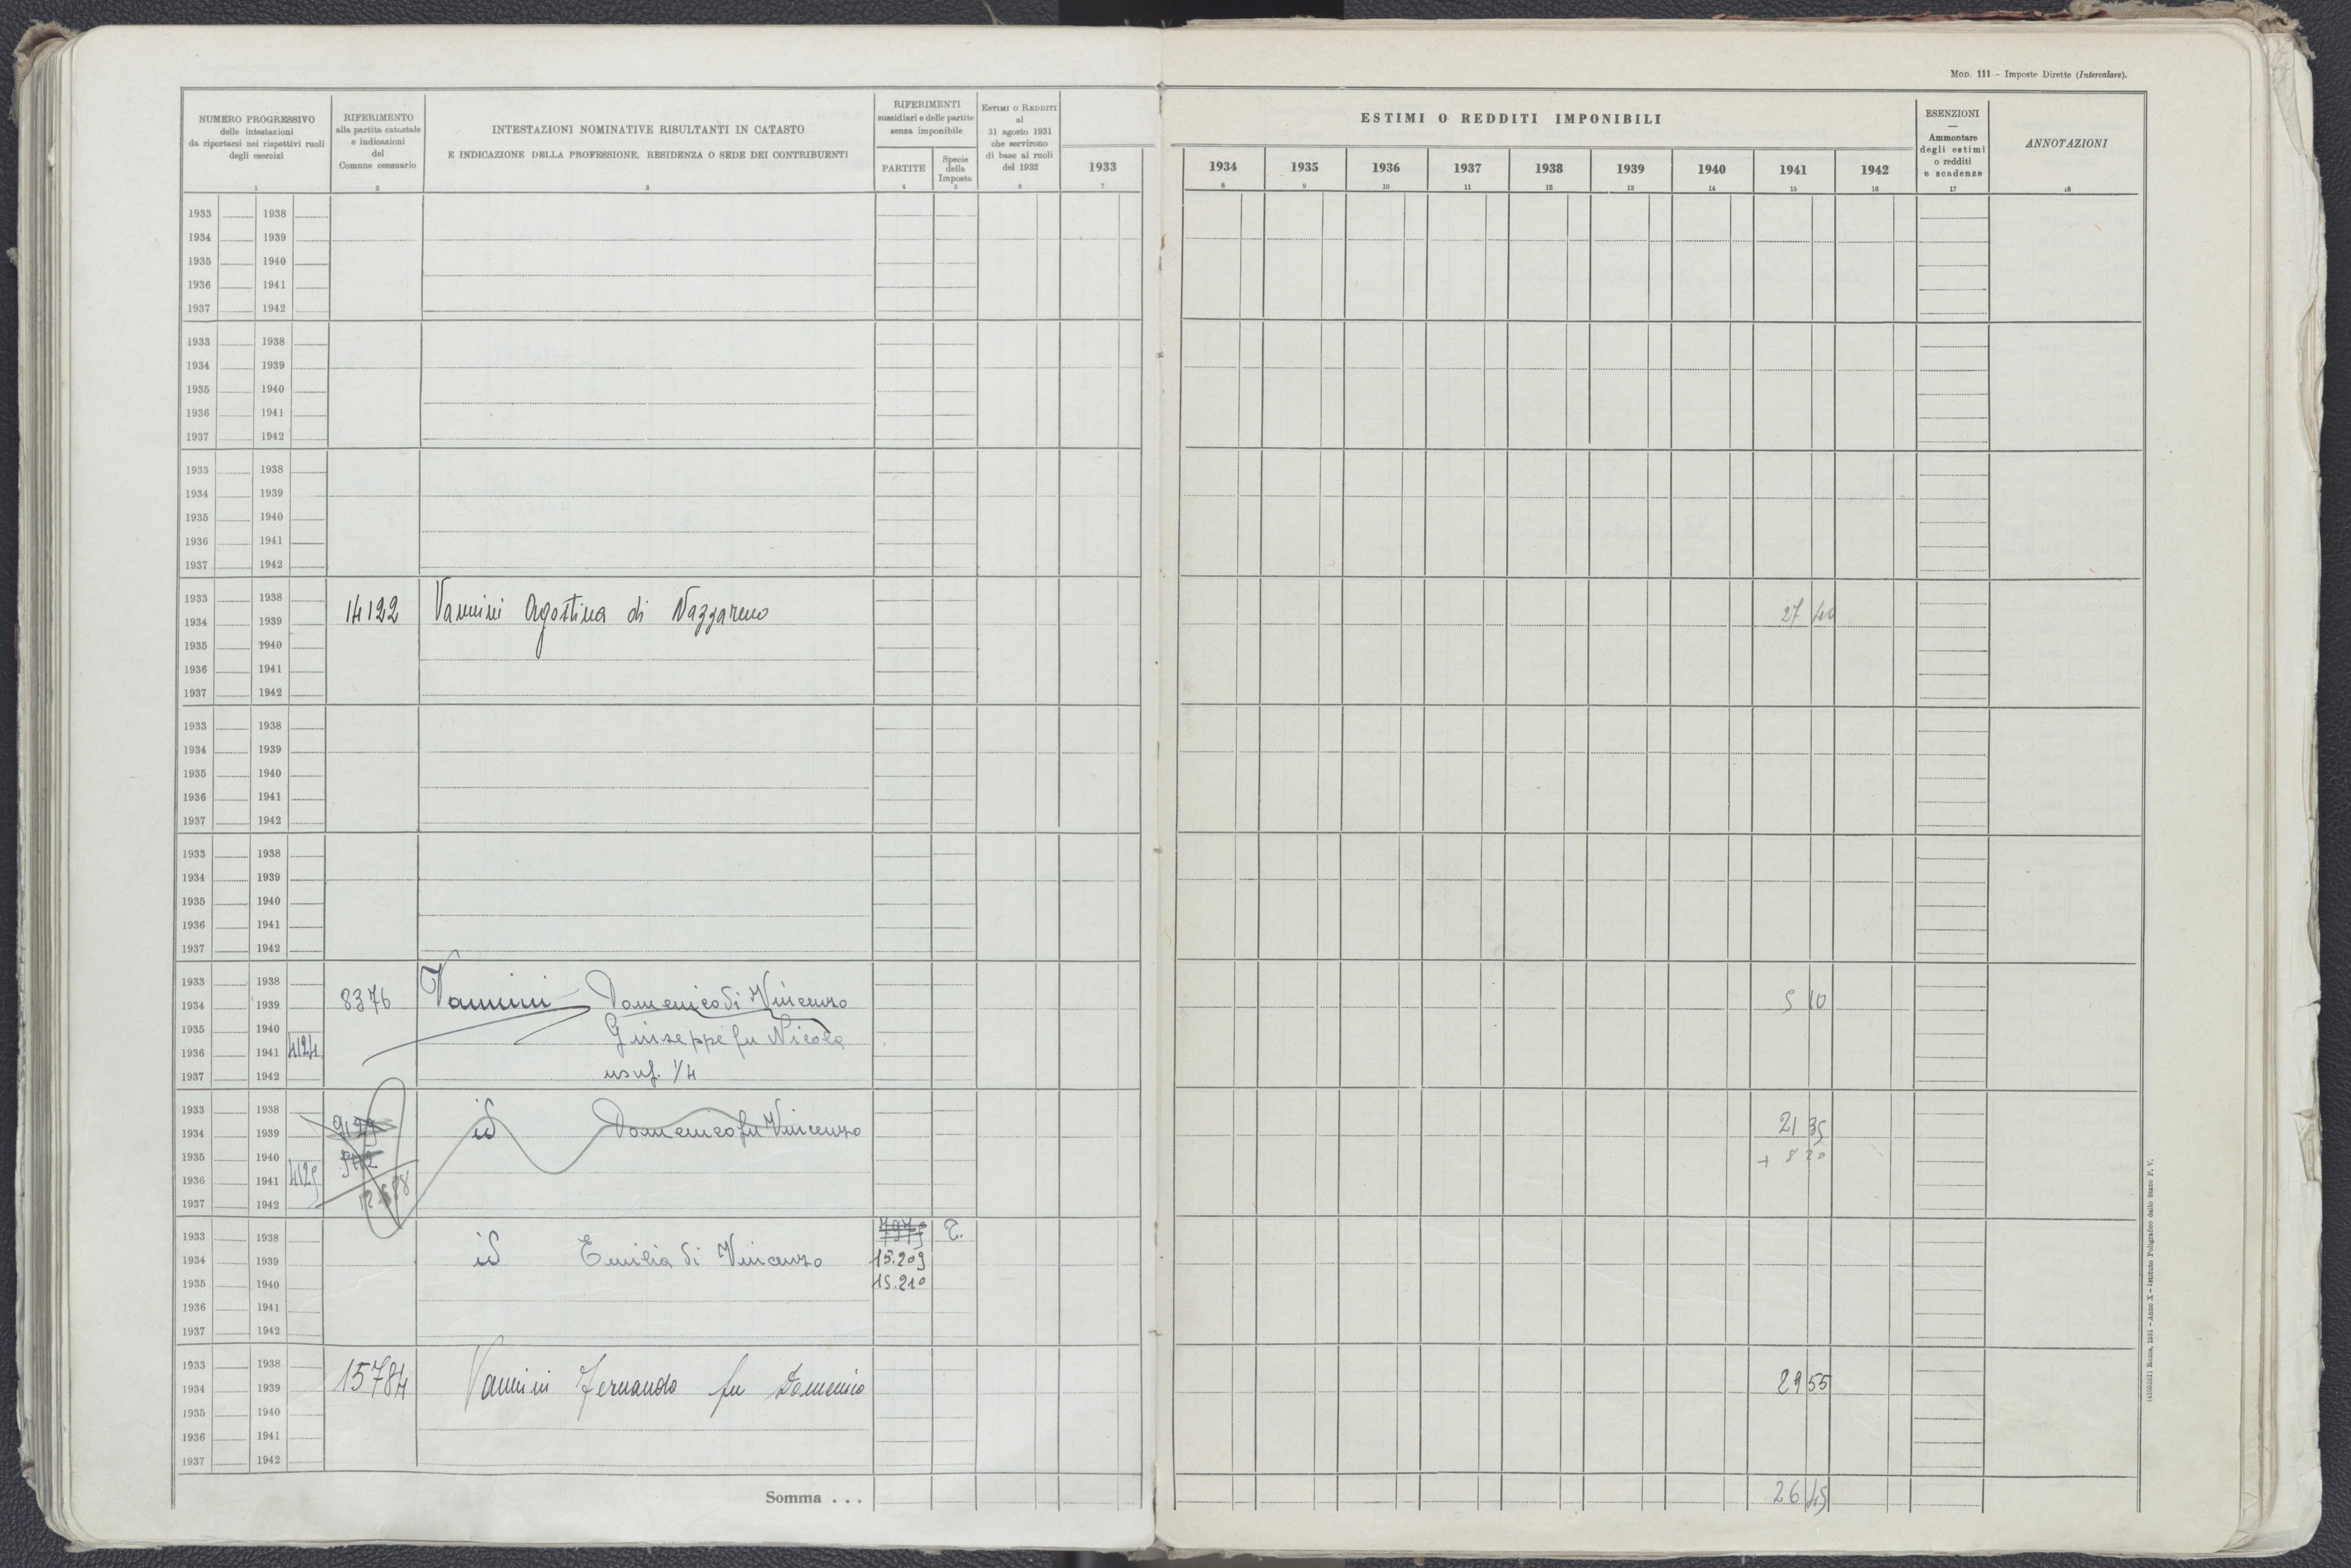 MOD. 111 – Imposte Dirette (Intercalare).
NUMERO PROGRESSIVO
delle intestazioni
da riportarsi nei rispettivi ruoli
degli esercizi
1
RIFERIMENTO
alla partita catastale
e indicazioni
del
Comune censuario
2
INTESTAZIONI NOMINATIVE RISULTANTI IN CATASTO
E INDICAZIONE DELLA PROFESSIONE, RESIDENZA O SEDE DEI CONTRIBUENTI
3
RIFERIMENTI
sussidiari e delle partite
senza imponibile
PARTITE
4
Specie
della
Imposta
5
ESTIMI O REDDITI
al
31 agosto 1931
che servirono
di base ai ruoli
del 1932
6
1933
7
ESTIMI O REDDITI IMPONIBILI
1934 1935 1936 1937 1938 1939 1940 1941 1942
8 9 10 11 12 13 14 15 16
ESENZIONI
—
Ammontare
degli estimi
o redditi
e scadenze
17
ANNOTAZIONI
18
1933 1938
1934 1939
1935 1940
1936 1941
1937 1942
1933 1938
1934 1939
1935 1940
1936 1941
1937 1942
1933 1938
1934 1939
1935 1940
1936 1941
1937 1942
1933 1938
1934 1939
1935 1940
1936 1941
1937 1942
14122 Vannini Agostina di Nazzareno 27 40
1933 1938
1934 1939
1935 1940
1936 1941
1937 1942
1933 1938
1934 1939
1935 1940
1936 1941
1937 1942
1933 1938
1934 1939
1935 1940
1936 1941 4124
1937 1942
8376 Vannini Domenico di Vincenzo 5 10
Giuseppe fu Nicola
usuf. 1/4
1933 1938
1934 1939
1935 1940
1936 1941 4125
1937 1942
id Domenico fu Vincenzo 21 35
+ 8 20
1933 1938
1934 1939
1935 1940
1936 1941
1937 1942
7975
id Emilia di Vincenzo 15.209
15.210
1933 1938
1934 1939
1935 1940
1936 1941
1937 1942
15784 Vannini Fernando fu Domenico 29 55
Somma . . . 26 45
(4105031) Roma, 1931 - Anno X - Istituto Poligrafico dello Stato P. V.